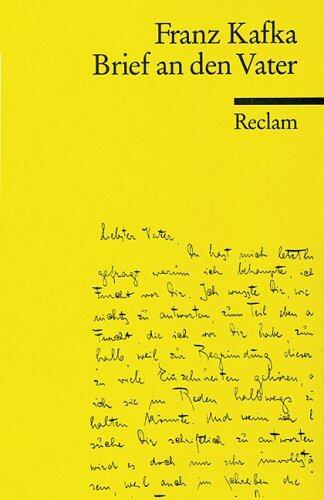 Franz Kafka
Brief an den Vater
Reclam
Liebster Vater,
Du hast mich letzthin
gefragt warum ich behaupte, ich
Furcht vor Dir. Ich wusste Dir, wie
nichts zu antworten, zum Teil eben a
Furcht die ich vor Dir habe, zum
halb weil zur Begründung dieser
zu viele Einzelheiten gehören, a
ich sie im Reden halbwegs z
halten könnte. Und wenn ich h
suche Dir schriftlich zu antworten
wird es doch nur sehr unvollstä
sein, weil auch im Schreiben die